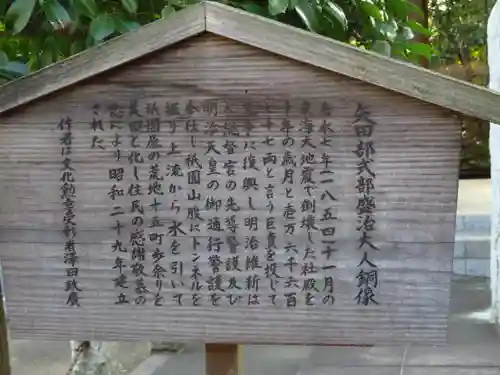 矢田部式部盛治大人銅像
嘉永七年(一八五四)十一月の
東海大地震で倒壊した社殿を
十年の歳月と壱万六千六百
七十七両と言う巨費を投じて
に復興し明治維新は
総督官の先導警護及び
明治天皇の御通行警護を
奉仕し祇園山腹にトンネルを
掘り上流から水を引いて
祇園原の荒地十五町歩余りを
美田と化し住民の感謝敬慕の
念により昭和二十九年建立
された。
作者は文化勲章受彰者澤田政廣